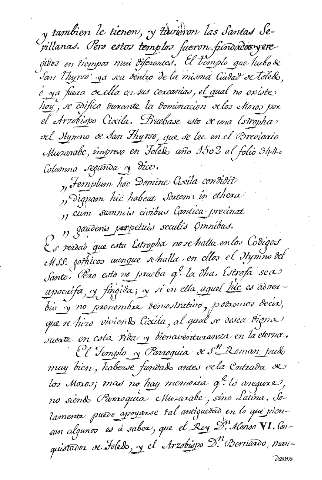 y tambien le tienen, y tuvieron las Santas Se-
villanas. Pero estos templos fueron fundados y ere-
gidos en tiempos muy diferentes. El templo que hubo de
San Thyrso ya sea dentro de la misma Ciudad de Toledo,
ó ya fuera de ella en sus cercanias, el qual no existe
hoy, se edificó durante la dominacion de los Moros por
el Arzobispo Cixila. Pruebase esto de una Estropha
del Hymno de San Thyrso, que se lee en el Breviario
Muzarabe, impreso en Toledo año 1502 al folio 344
Columna segunda y dice:
„Templum hoc Domine Cixila condidit
„Dignam hic habeat sortem in ethera
„cum summis civibus Cantica precinat
„gaudens perpetuis seculis omnibus.
Es verdad que esta Estropha no se halla en los Codigos
MSS. gothicos aunque se halla en ellos el Hymno del
Santo. Pero esto no prueba qe. la dha. Estrofa sea
apocrifa, y fingida; y si en ella aquel hic es adver-
bio y no pronombre demostrativo, podremos decir,
que se hizo viviendo Cixila, al qual se desea digna
suerte en esta vida y bienaventuranza en la eterna.
El Templo y Parroquia de Sn. Roman pudo
muy bien, haberse fundado antes de la Entrada de
los Moros; mas no hay memoria qe. lo asegure,
no siendo Parroquia Muzarabe, sino Latina. So-
lamente puede apoyarse tal antiguedad en lo que pien-
san algunos es á saber, que el Rey Dn. Alonso VI. Con-
quistador de Toledo, y el Arzobispo Dn. Bernardo, man-
daron